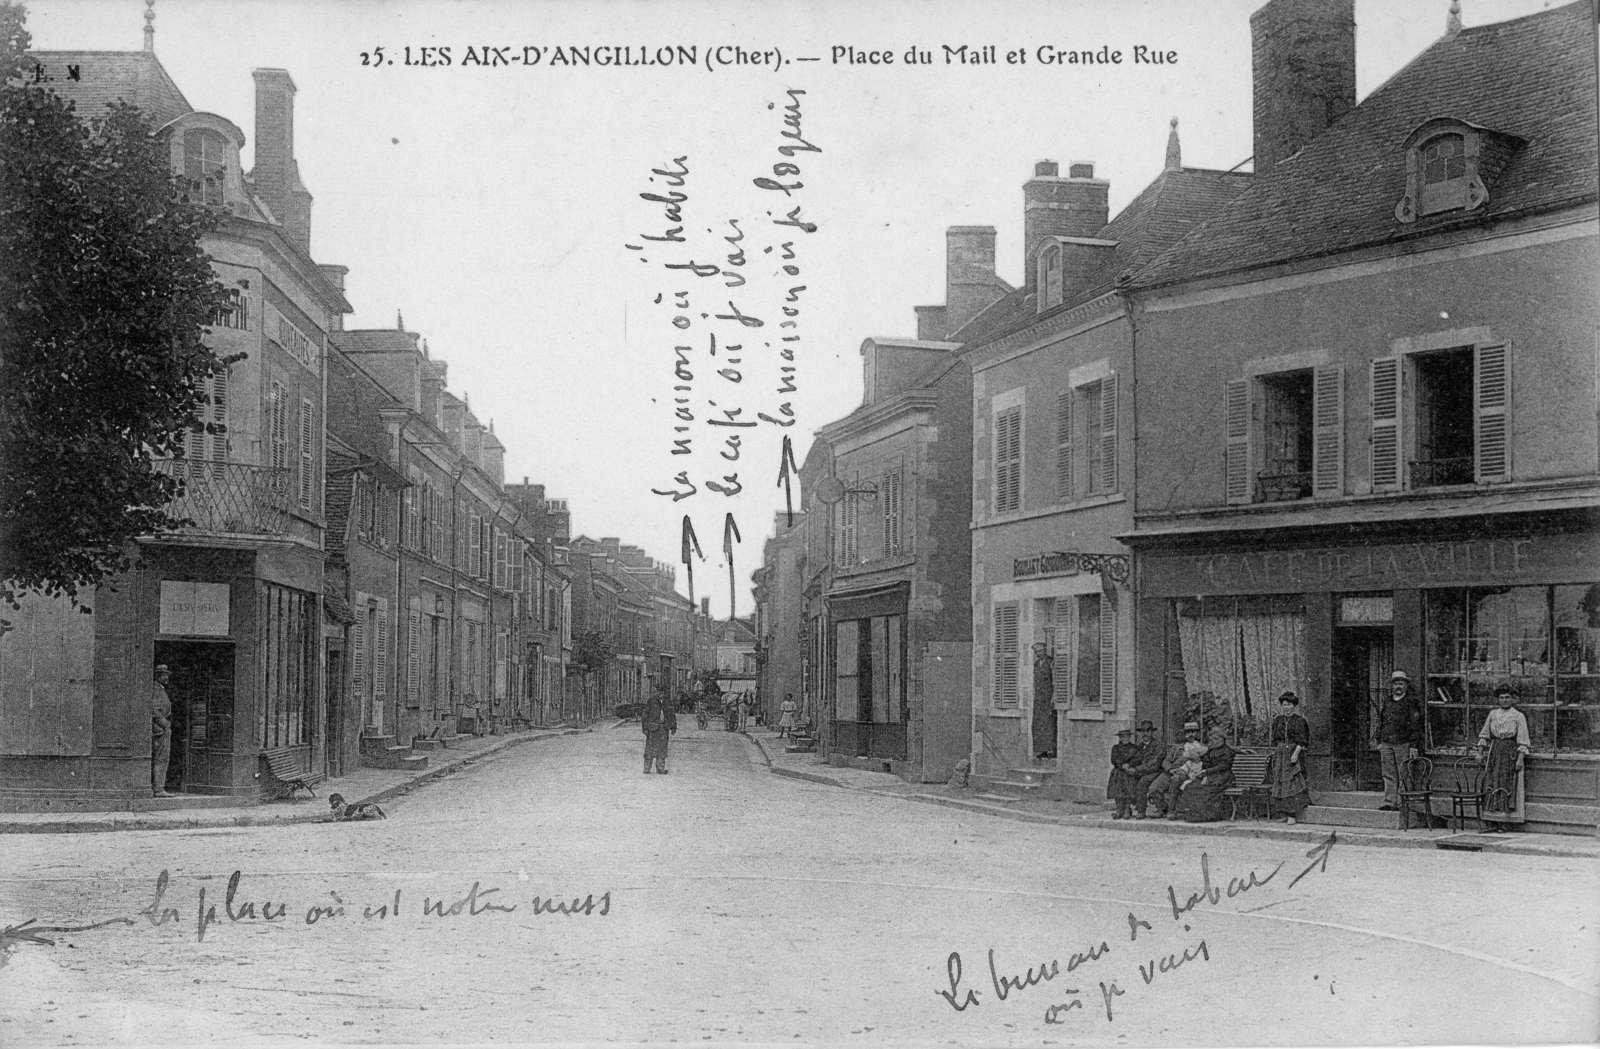 25. LES AIX-D'ANGILLON (Cher). — Place du Mail et Grande Rue
E. M
La maison où j'habite
Le café où je vais
La maison où je logeais
NOUVEAUTES
CAFE DE LA VILLE
La place où est notre mess
Le bureau de tabac
où je vais